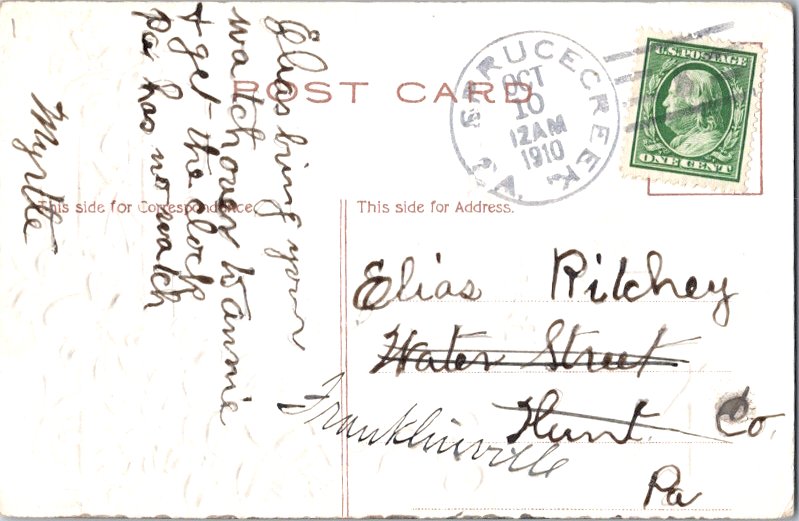 POST CARD
SPRUCECREEK PA
OCT
10
12AM
1910
U.S. POSTAGE
ONE CENT
This side for Correspondence.
This side for Address.
Elias bring your
watch over Wannie
& get the clock
pa has no watch
Myrtle
Elias Ritchey
Water Street
Hunt. Co.
Franklinville
Pa